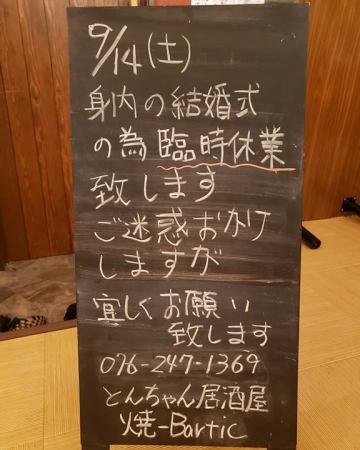 9/14(土)
身内の結婚式
の為臨時休業
致します
ご迷惑おかけ
しますが
宜しくお願い
致します
076-247-1369
とんちゃん居酒屋
焼-Bartic